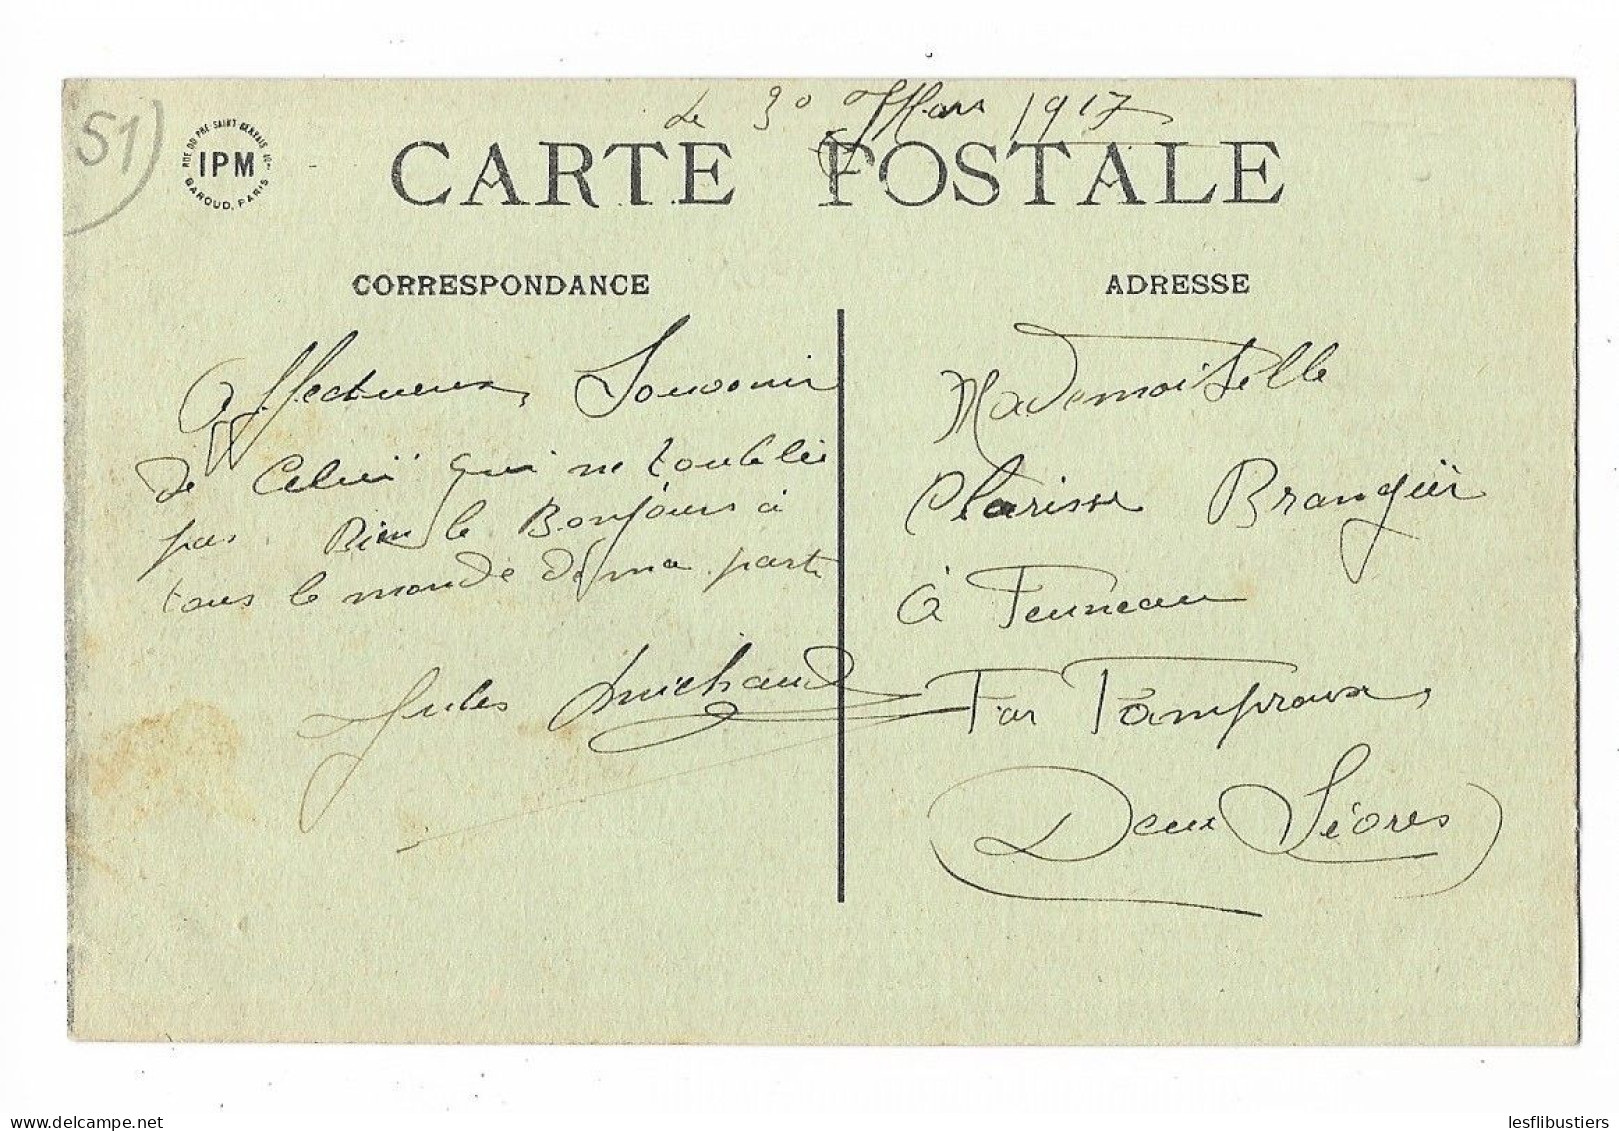 Le 30 Mars 1917
51)
RUE DU PRÉ SAINT GERVAIS
IPM
BAROUD, PARIS
CARTE POSTALE
CORRESPONDANCE
Affectueux Souvenir
de Celui qui ne toublie
pas. Bien le Bonjours à
tous le monde de ma part
Jules Michaud
ADRESSE
Mademoiselle
Clarisse Brangier
à
Par Pamproux
Deux Sèvres
lesflibustiers